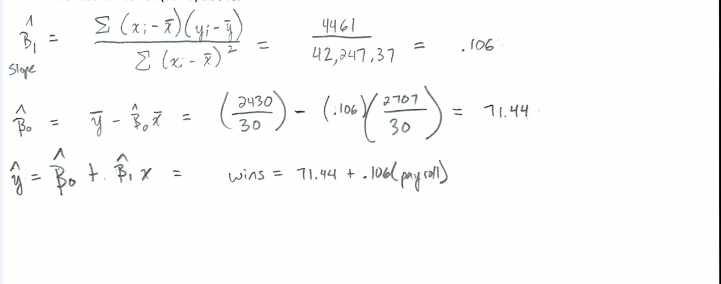 β̂₁ = Σ (xᵢ - x̄)(yᵢ - ȳ) / Σ (xᵢ - x̄)² = 4461 / 42,247.37 = .106
Slope
β̂₀ = ȳ - β̂₀x̄ = (2430 / 30) - (.106)(2707 / 30) = 71.44
ŷ = β̂₀ + β̂₁x = wins = 71.44 + .106(payroll)